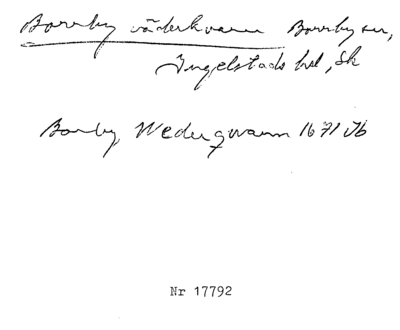 Borrby väderkvarn Borrby sn,
Ingelstads hd, Sk
Borby Wederqwarn 1671 Jb
Nr 17792